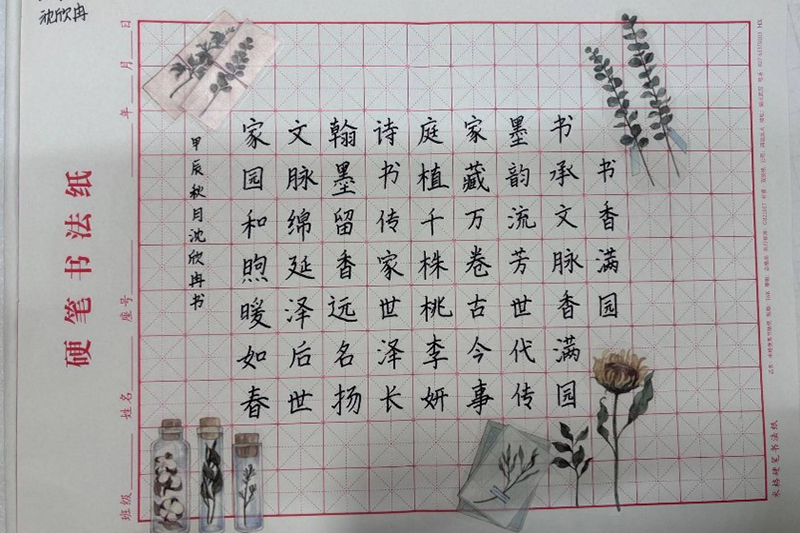 沈欣冉
书香满园
书承文脉香满园
墨韵流芳世代传
家藏万卷古今事
庭植千株桃李妍
诗书传家世泽长
翰墨留香远名扬
文脉绵延泽后世
家园和煦暖如春
甲辰秋月沈欣冉书
硬笔书法纸
班级 姓名 座号 年 月 日
米格硬笔书法纸